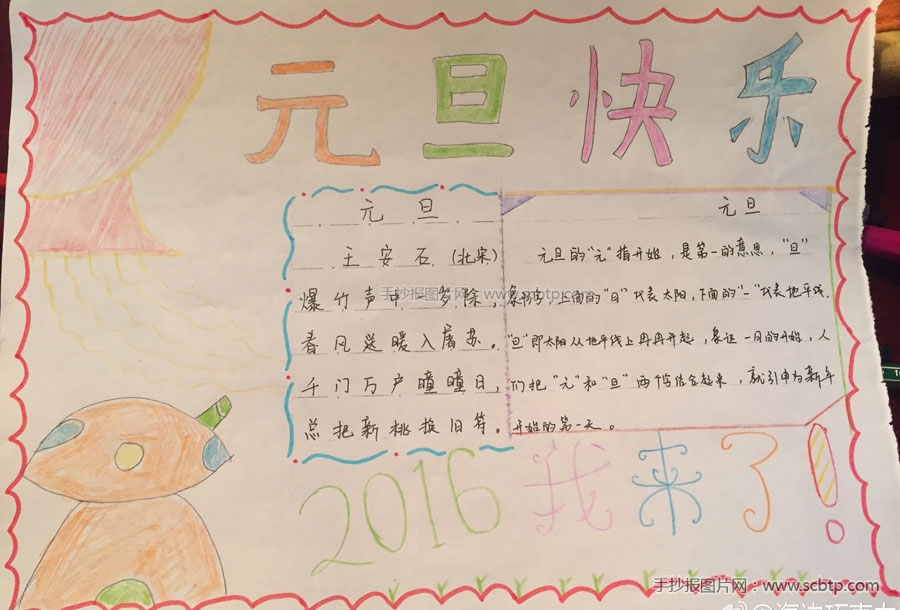 元旦快乐
元旦
王安石(北宋)
爆竹声中一岁除,
春风送暖入屠苏。
千门万户曈曈日,
总把新桃换旧符。
元旦
元旦的“元”指开始,是第一的意思,“旦”
象形字,上面的“日”代表太阳,下面的“一”代表地平线.
“旦”即太阳从地平线上冉冉升起,象征一日的开始,人
们把“元”和“旦”两个字结合起来,就引申为新年
开始的第一天。
2016我来了!
手抄报图片网:www.scbtp.com
手抄报图片网:www.scbtp.com